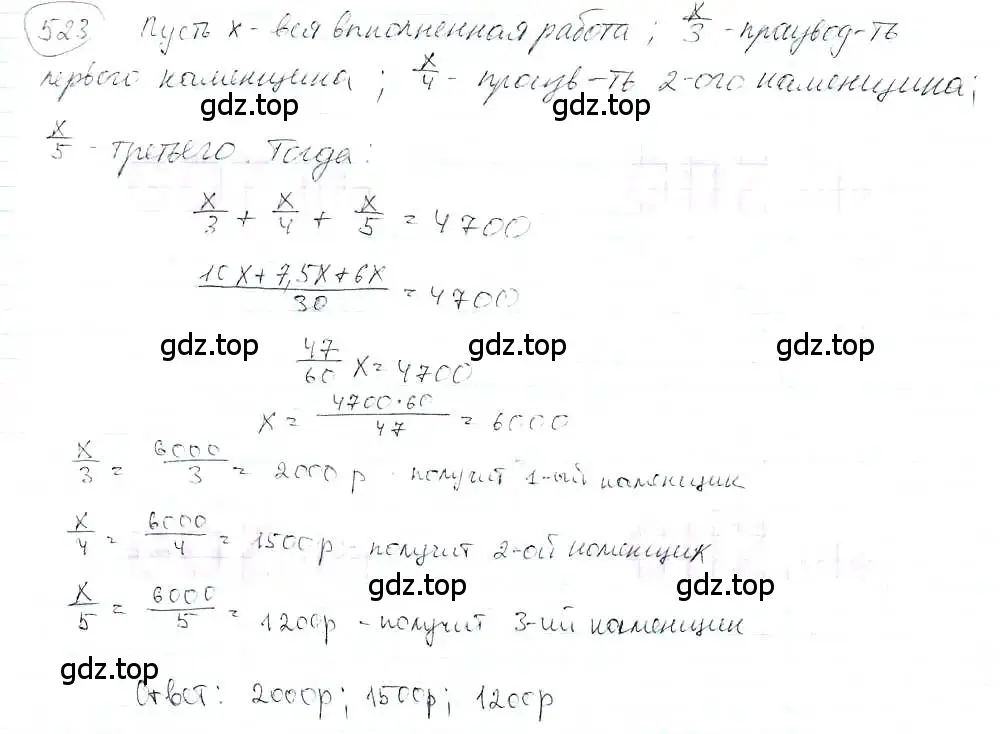 523 Пусть х - вся выполненная работа; x/3 - производ-ть
первого каменщика; x/4 - произв-ть 2-ого каменщика;
gdz.top gdz.top gdz.top
x/5 - третьего. Тогда:
x/3 + x/4 + x/5 = 4700
(10x + 7,5x + 6x)/30 = 4700
gdz.top gdz.top gdz.top
47/60 x = 4700
x = (4700·60)/47 = 6000
x/3 = 6000/3 = 2000 р - получит 1-ый каменщик
gdz.top gdz.top
x/4 = 6000/4 = 1500 р - получит 2-ой каменщик
gdz.top gdz.top
x/5 = 6000/5 = 1200р - получит 3-ий каменщик
gdz.top
Ответ: 2000р; 1500р; 1200р